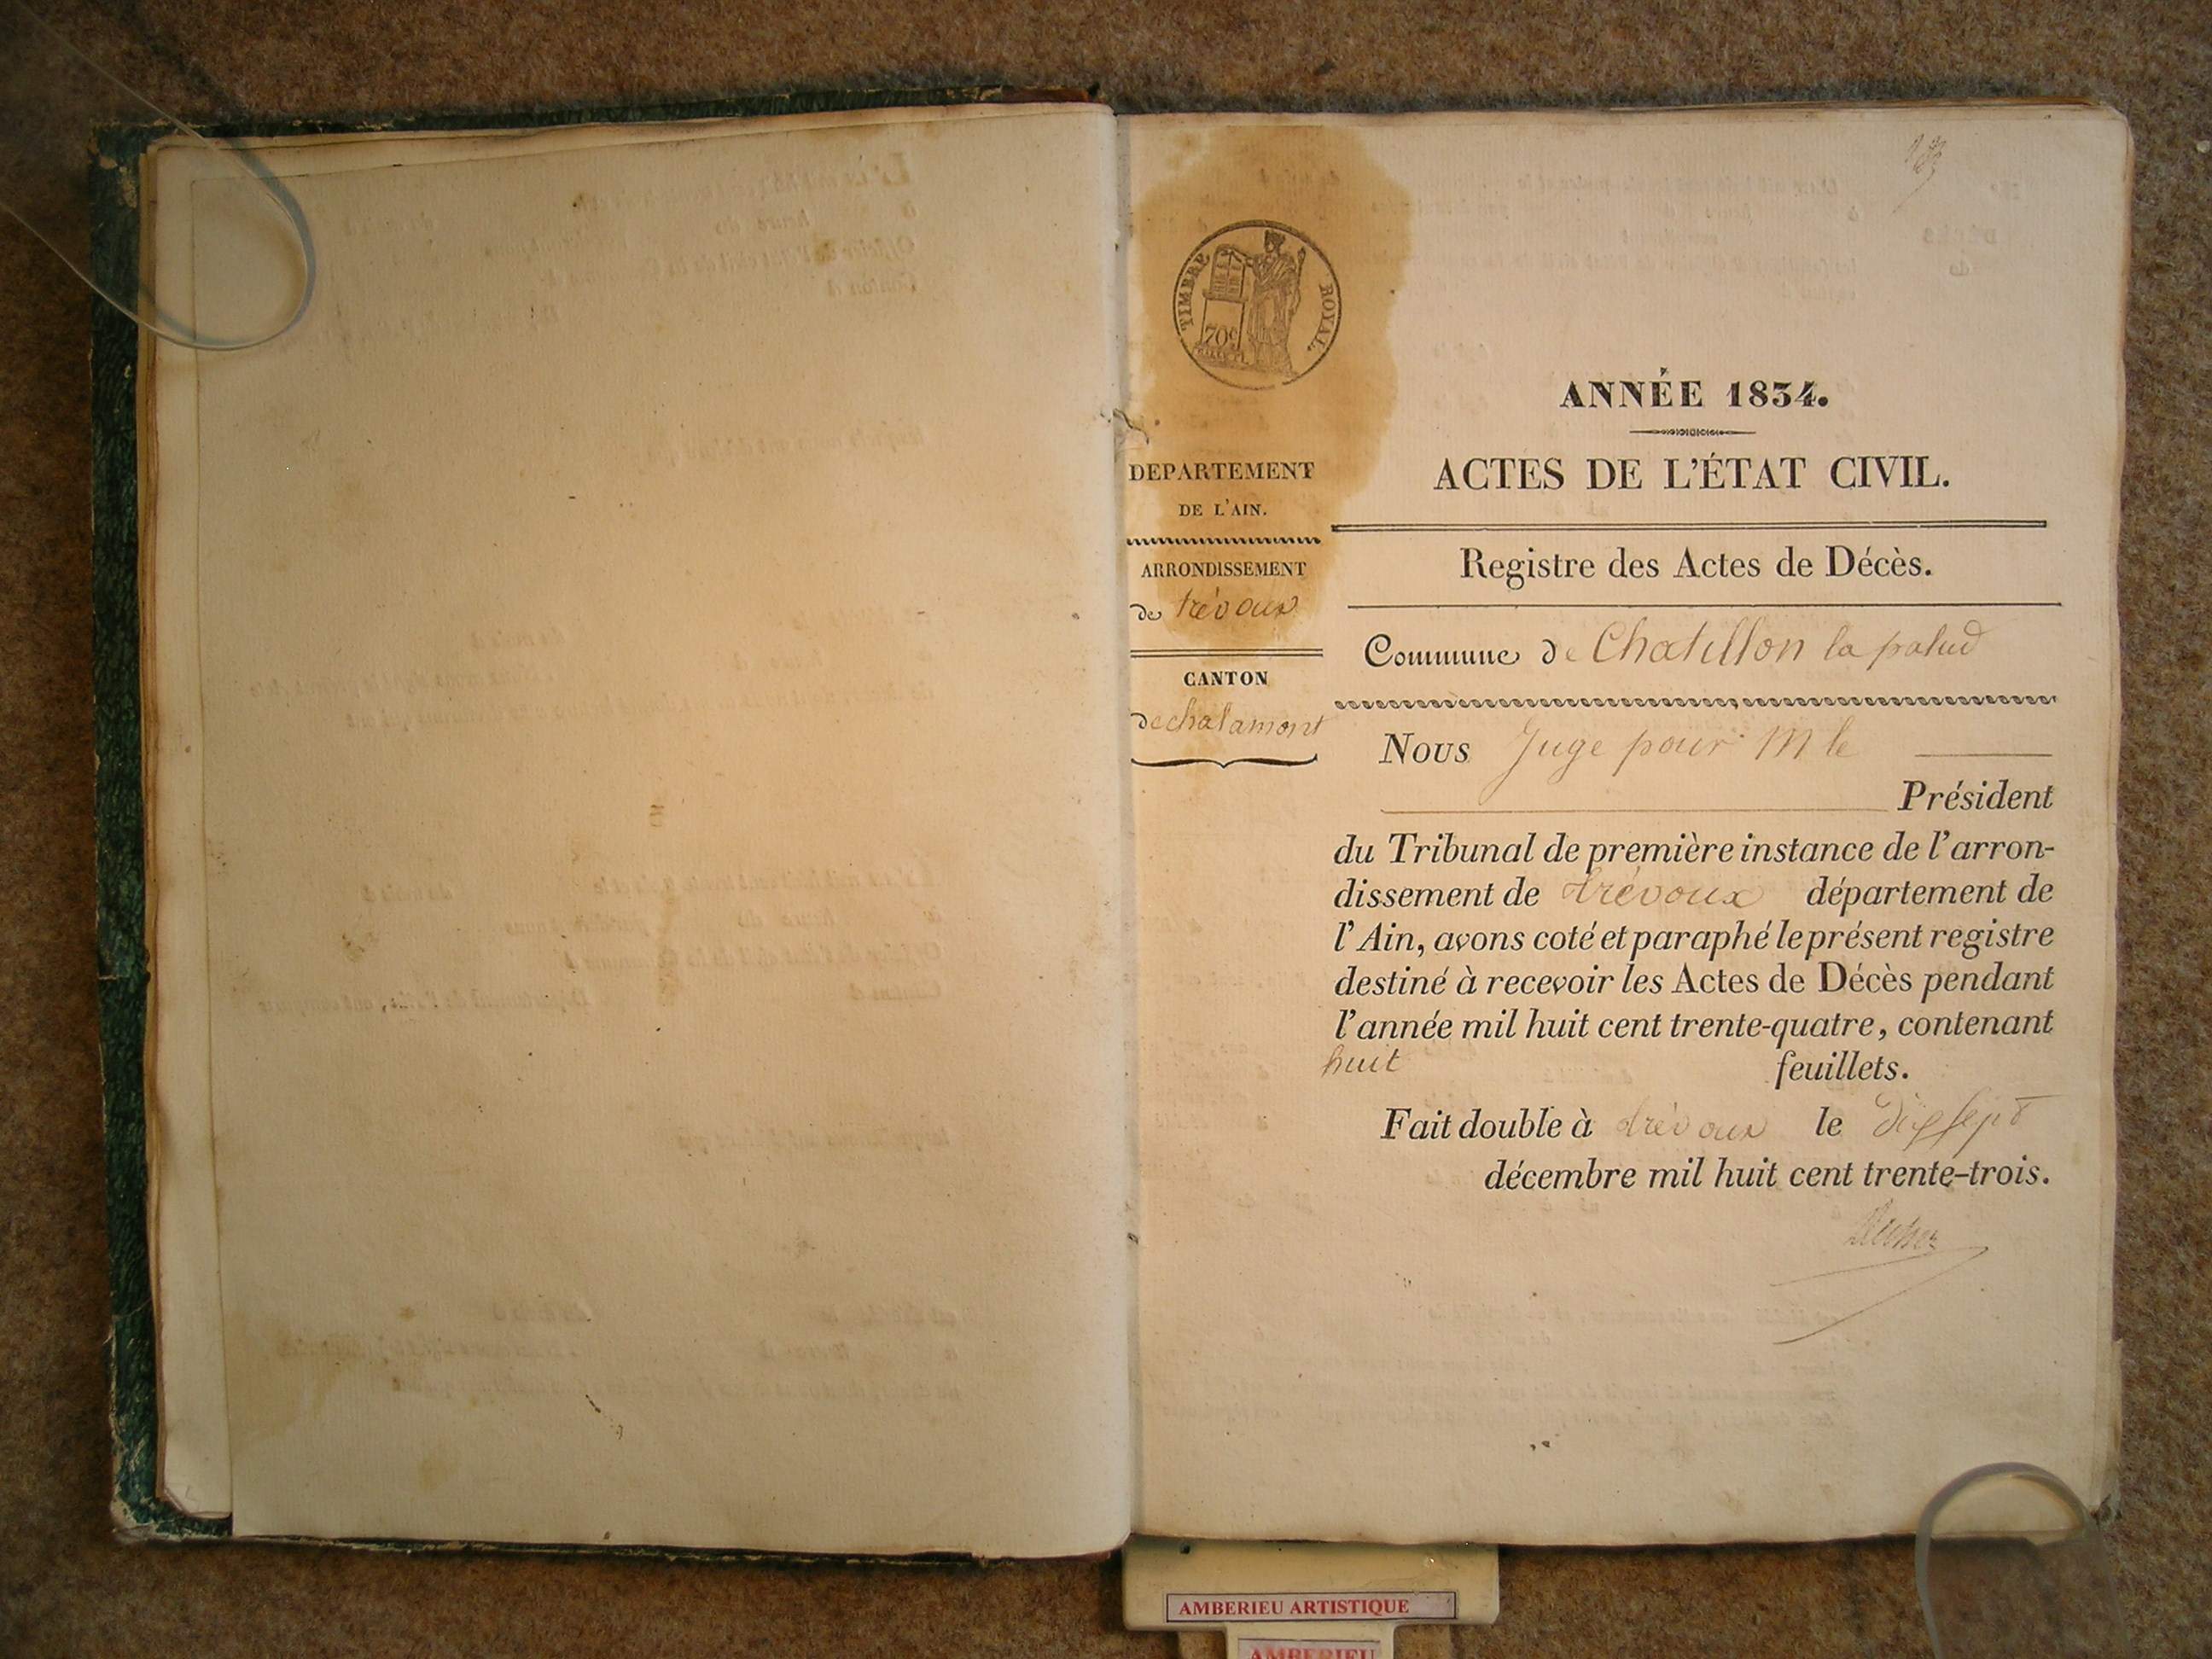 TIMBRE ROYAL.
70c
DEPARTEMENT
DE L'AIN.
ARRONDISSEMENT
de trévoux
CANTON
de chalamont
ANNÉE 1834.
ACTES DE L'ÉTAT CIVIL.
Registre des Actes de Décès.
Commune de Chatillon la palud
Nous Juge pour M le
Président
du Tribunal de première instance de l'arron-
dissement de trévoux département de
l'Ain, avons coté et paraphé le présent registre
destiné à recevoir les Actes de Décès pendant
l'année mil huit cent trente-quatre, contenant
huit feuillets.
Fait double à trévoux le dix sept
décembre mil huit cent trente-trois.
AMBERIEU ARTISTIQUE
AMBERIEU